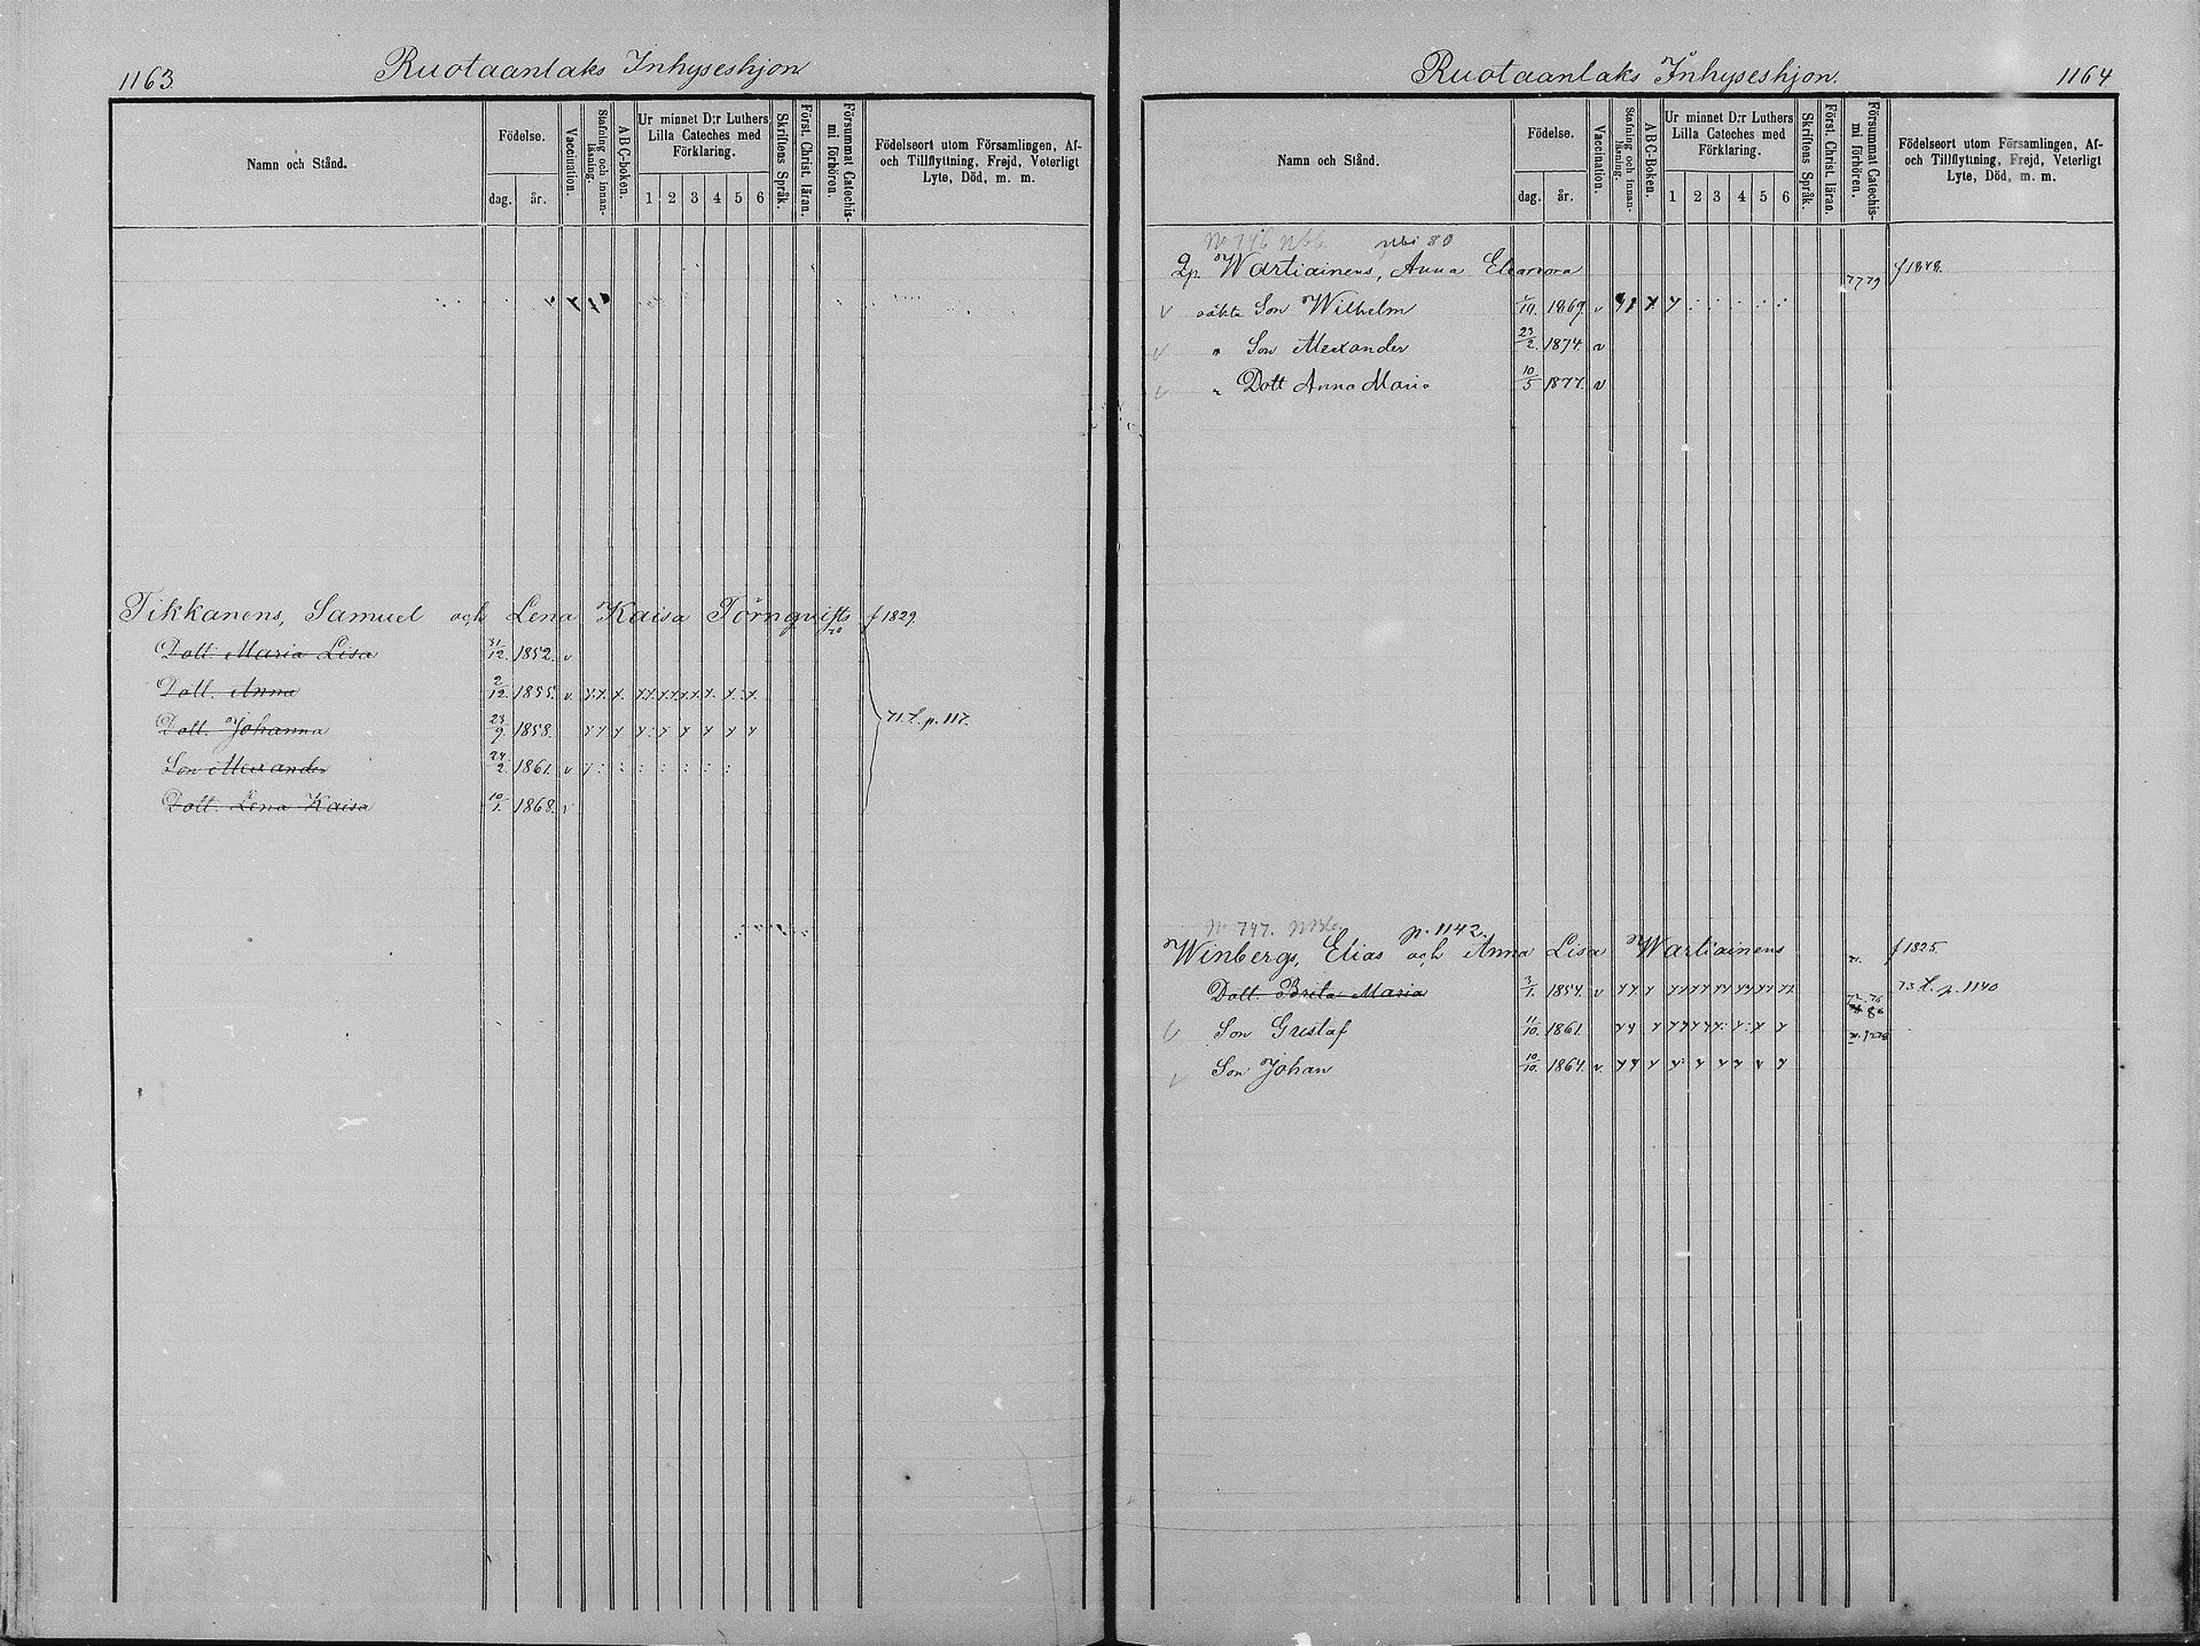 1163
Ruotaanlaks Inhyseshjon
Namn och Stånd.
Födelse.
dag.
år.
Vaccination.
Stafning och innan-läsning.
A B C-boken.
Ur minnet D:r Luthers Lilla Cateches med Förklaring.
1 2 3 4 5 6
Skriftens Språk.
Först. Christ. läran.
Försummat Catechis-mi förhören.
Födelseort utom Församlingen, Af- och Tillflyttning, Frejd, Veterligt Lyte, Död, m. m.
Tikkanens, Samuel och Lena Kaisa Törnqvists f 1829.
Dott. Maria Lisa 31/12. 1852. v
Dott. Anna 2/12. 1855. v.
Dott. Johanna 23/9. 1858. 71. p. 117.
Son Alexander 24/2. 1861. v
Dott. Lena Kaisa 10/1. 1868. v
Ruotaanlaks Inhyseshjon.
1164
Namn och Stånd.
Födelse.
dag.
år.
Vaccination.
Stafning och innan-läsning.
A B C-boken.
Ur minnet D:r Luthers Lilla Cateches med Förklaring.
1 2 3 4 5 6
Skriftens Språk.
Först. Christ. läran.
Försummat Catechis-mi förhören.
Födelseort utom Församlingen, Af- och Tillflyttning, Frejd, Veterligt Lyte, Död, m. m.
80
Wartiainens, Anna Eleanora 7779 f 1848.
oäkta Son Wilhelm 1869. v
" Son Alexander 23/2. 1874. v
" Dott Anna Maria 10/5 1877. v
No 747. p. 1142.
Winbergs, Elias och Anna Lisa Wartiainens f 1825.
Dott. Brita Maria 3/1. 1854. v 73 p. 1140
Son Gustaf 11/10. 1861.
Son Johan 10/10. 1864. v.